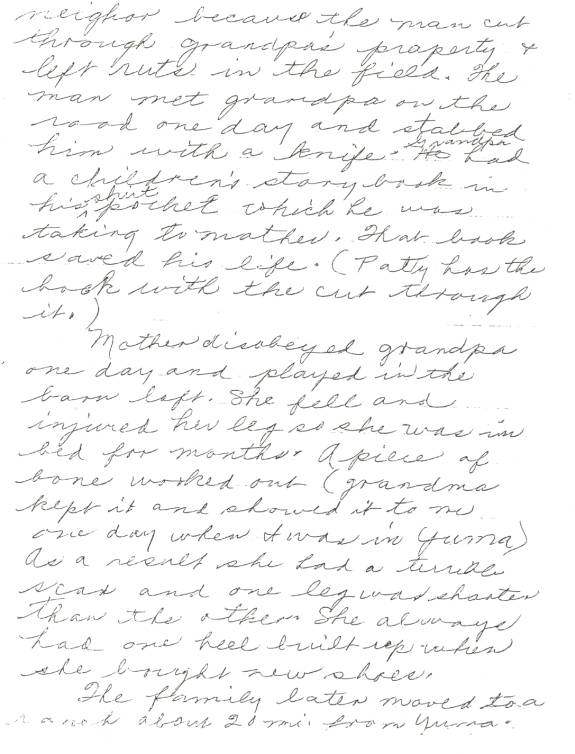 neighor because the man cut
through grandpa's property &
left ruts in the field. The
man met grandpa on the
road one day and stabbed
him with a knife. Grandpa had
a children's story book in
his shirt pocket which he was
taking to mother. That book
saved his life. (Patty has the
book with the cut through
it.)
Mother disobeyed grandpa
one day and played in the
barn loft. She fell and
injured her leg so she was in
bed for months. A piece of
bone worked out (grandma
kept it and showed it to me
one day when I was in Yuma)
As a result she had a terrible
scar and one leg was shorter
than the other. She always
had one heel built up when
she bought new shoes.
The family later moved to a
ranch about 20 mi. from Yuma.